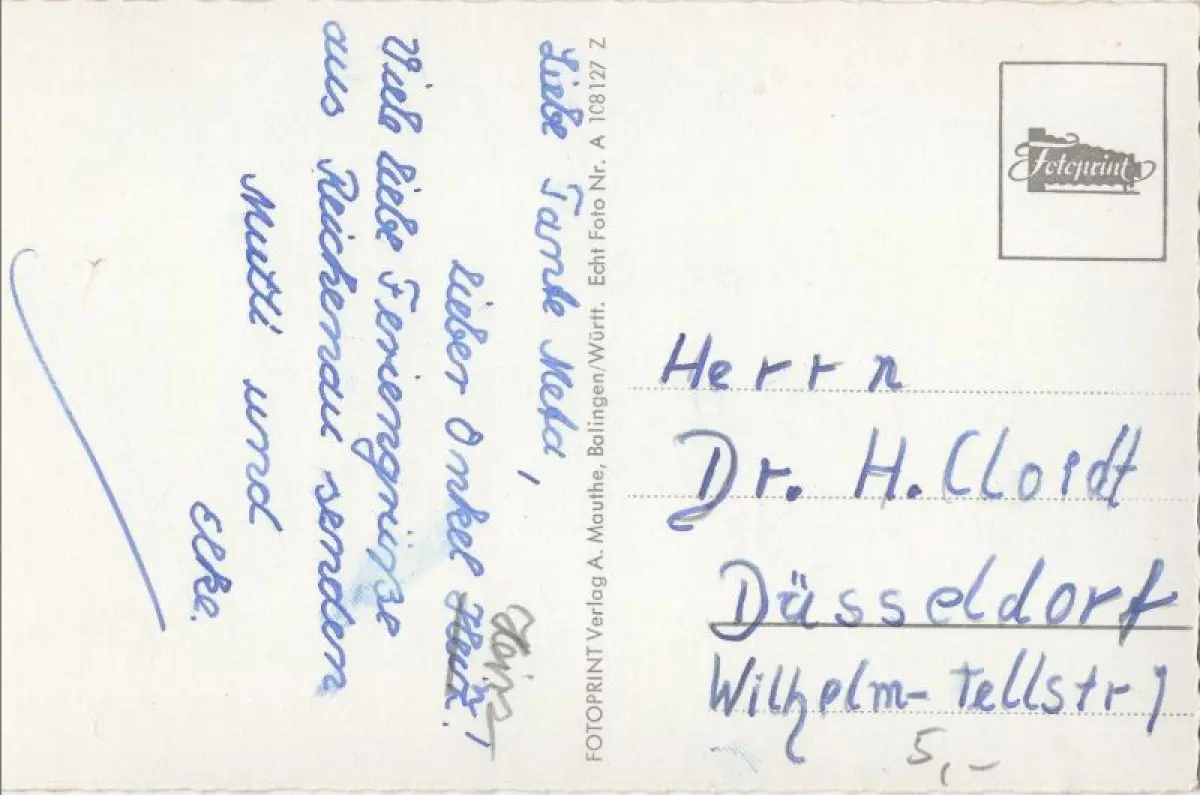 Liebe Tante Meta,
lieber Onkel Heinz!
Heinz
Viele liebe Feriengrüße
aus Reichenau senden
Mutti und
Elke.
FOTOPRINT Verlag A. Mauthe, Balingen/Württ. Echt Foto Nr. A 108127 Z
Fotoprint
Herrn
Dr. H. Cloidt
Düsseldorf
Wilhelm-Tellstr 1
5,-